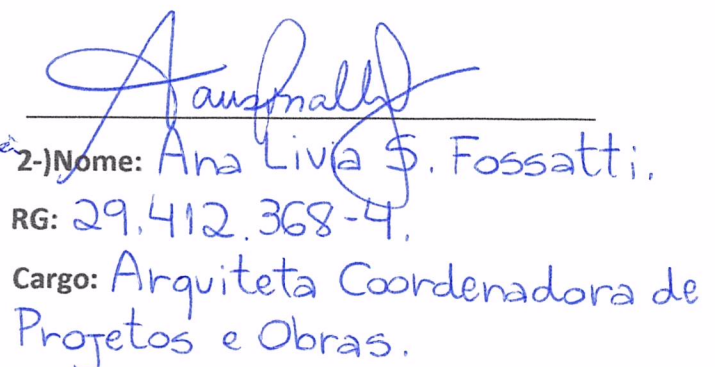 2-)Nome: Ana Livia S. Fossatti.
RG: 29.412.368-4.
Cargo: Arquiteta Coordenadora de
Projetos e Obras.